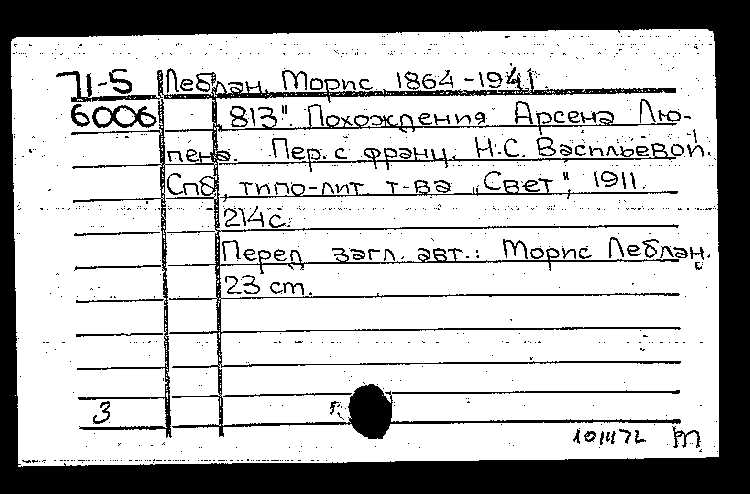 71-5 Леблан, Морис, 1864-1941
6006 „813". Похождения Арсена Лю-
пена. Пер. с франц. Н.С. Васильевой.
Спб, типо-лит. т-ва „Свет", 1911.
214 с.
Перед загл. авт.: Морис Леблан.
23 cm.
3